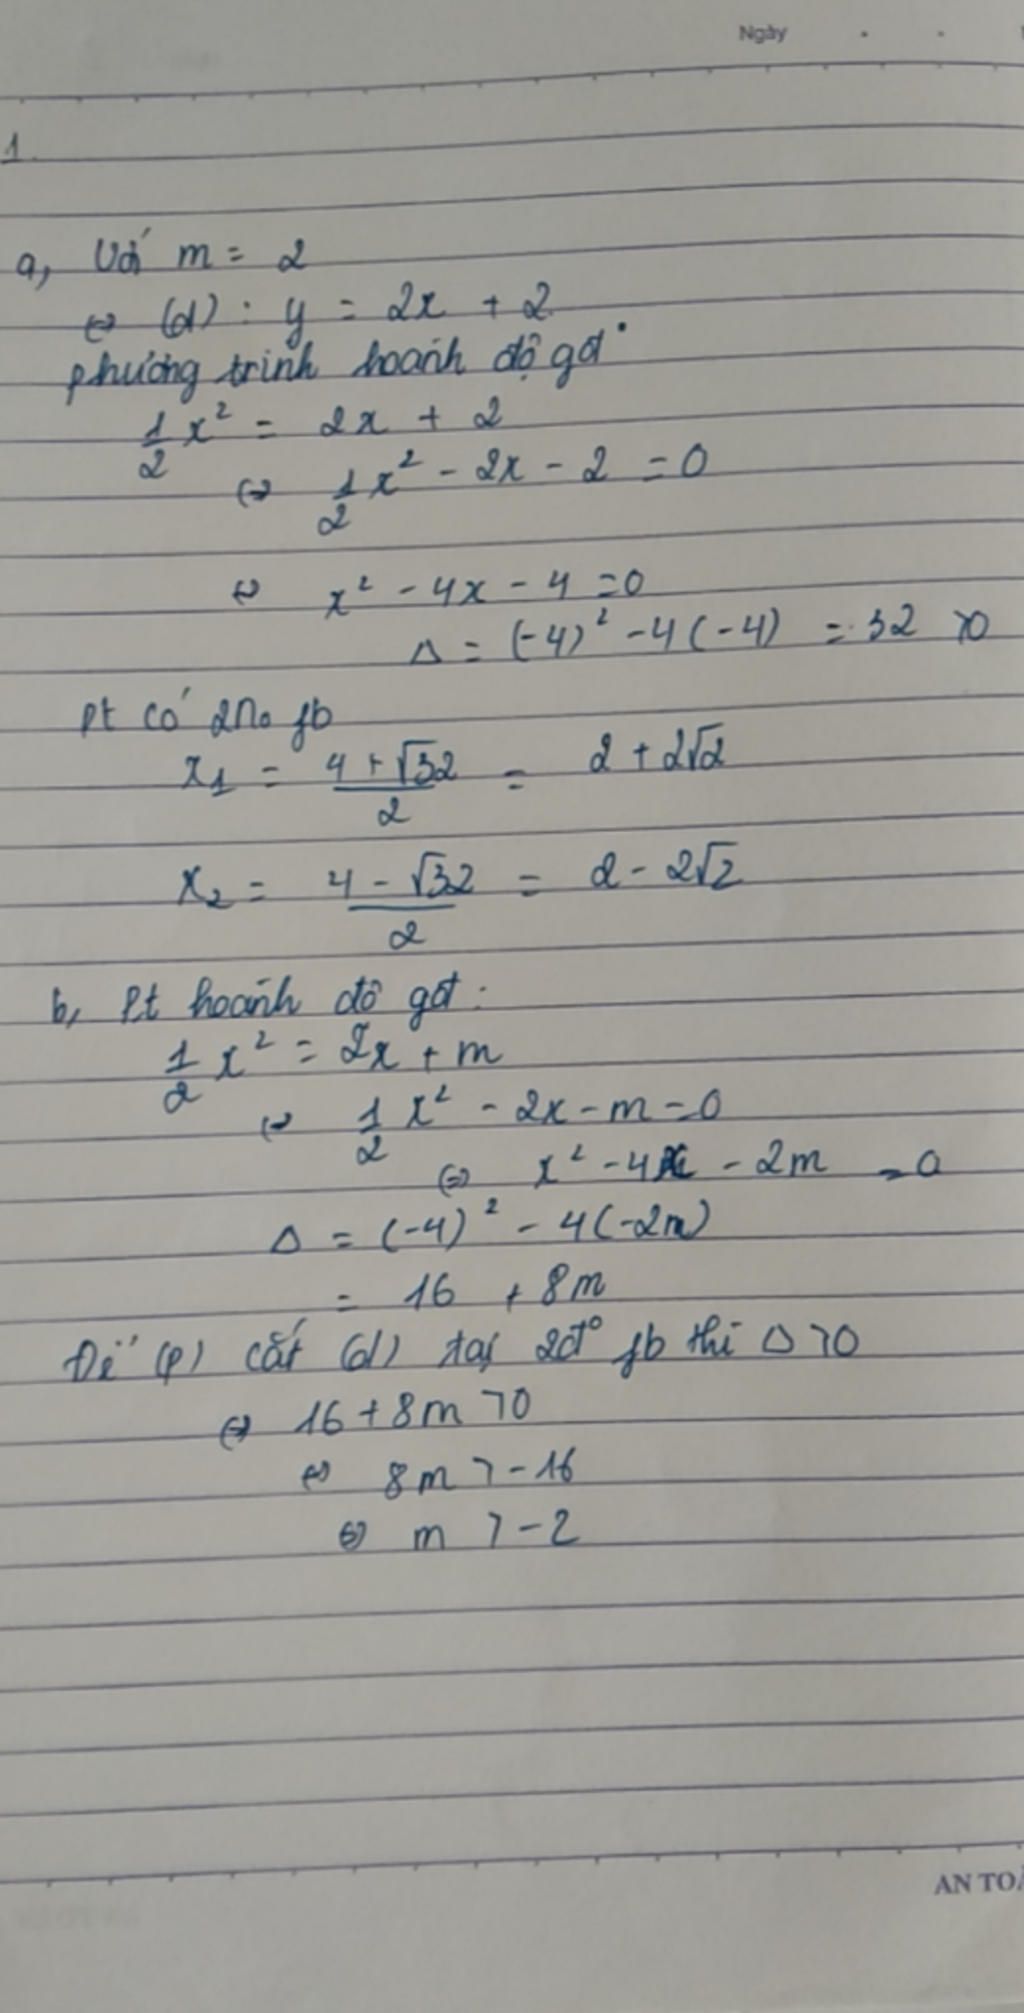 Ngày
1
a, Với m = 2
⇔ (d) : y = 2x + 2
phương trình hoành độ gđ
1/2 x² = 2x + 2
⇔ 1/2 x² - 2x - 2 = 0
⇔ x² - 4x - 4 = 0
Δ = (-4)² - 4(-4) = 32 > 0
Pt có 2No fb
x₁ = (4 + √32)/2 = 2 + 2√2
x₂ = (4 - √32)/2 = 2 - 2√2
b, Pt hoành độ gđ :
1/2 x² = 2x + m
⇔ 1/2 x² - 2x - m = 0
⇔ x² - 4x - 2m = 0
Δ = (-4)² - 4(-2m)
= 16 + 8m
Để (P) cắt (d) tại 2đ° fb thì Δ > 0
⇔ 16 + 8m > 0
⇔ 8m > -16
⇔ m > -2
AN TOÀ